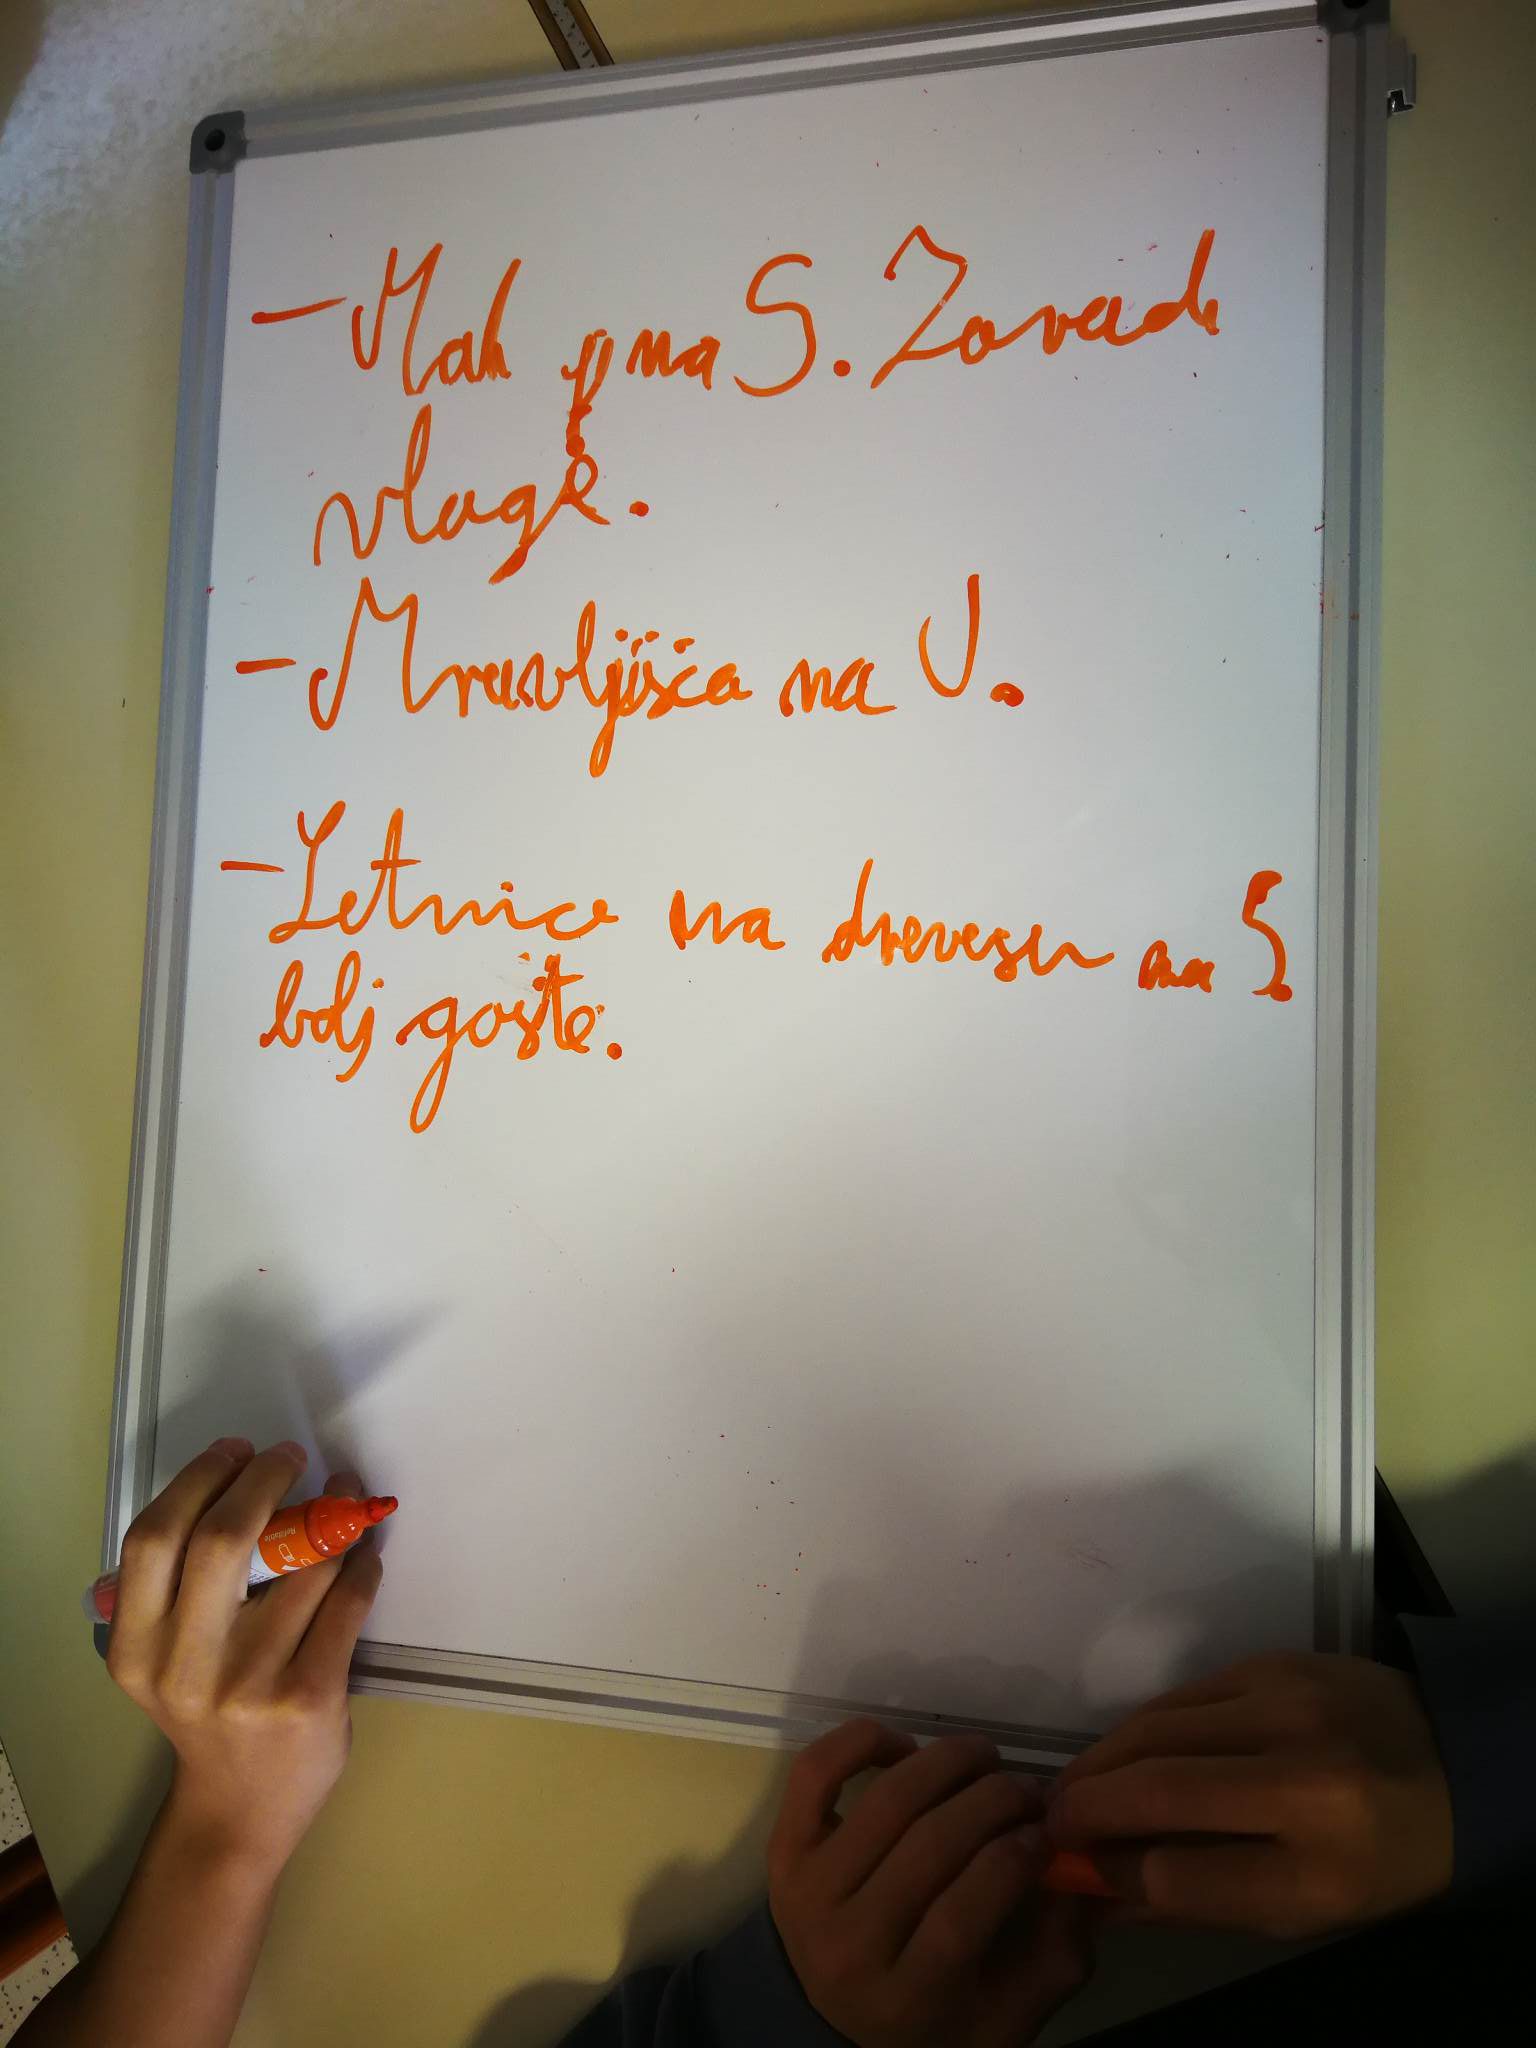 - Mah je na S. Zaradi
vlage.
- Mravljišča na J.
- Letnice na drevesu na S.
bolj goste.
Refillable